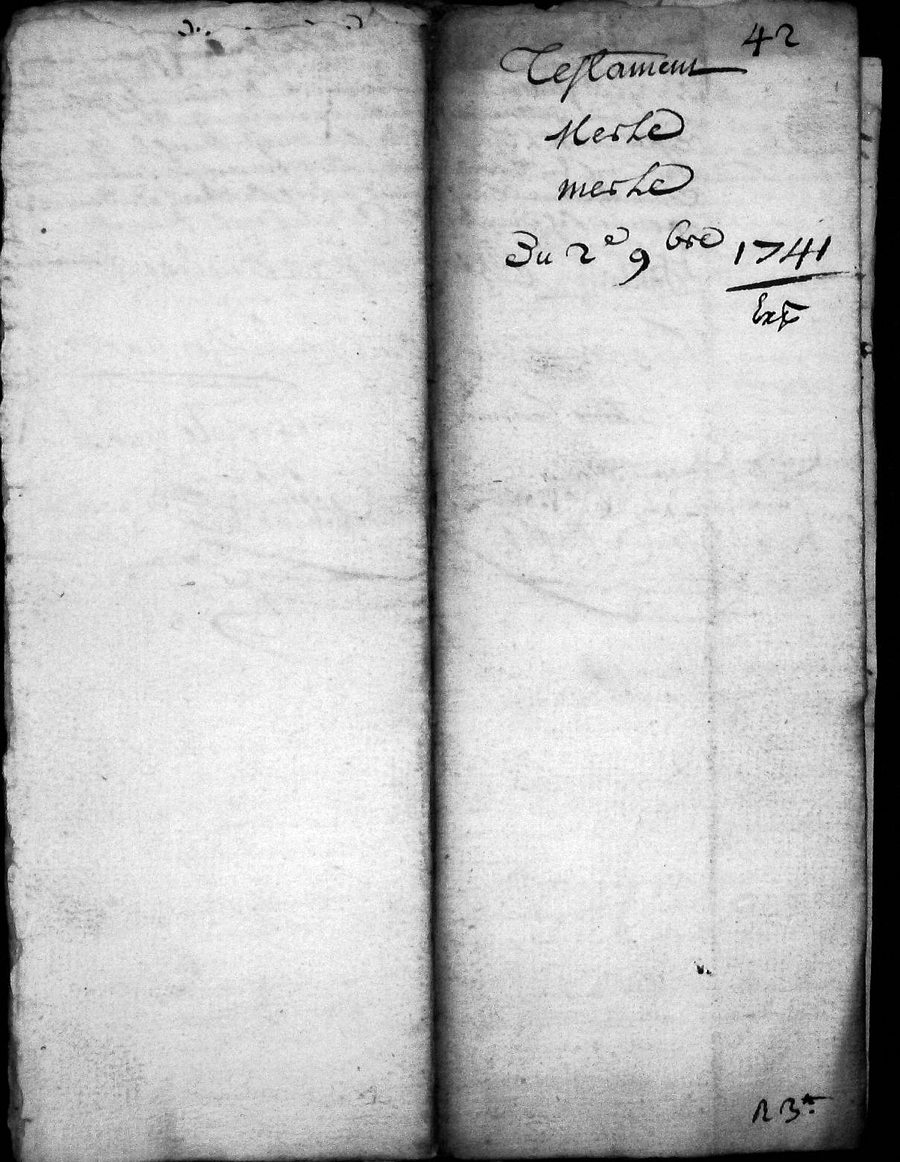 42
Testament
Merle
merle
Du 2e 9bre 1741
Ext